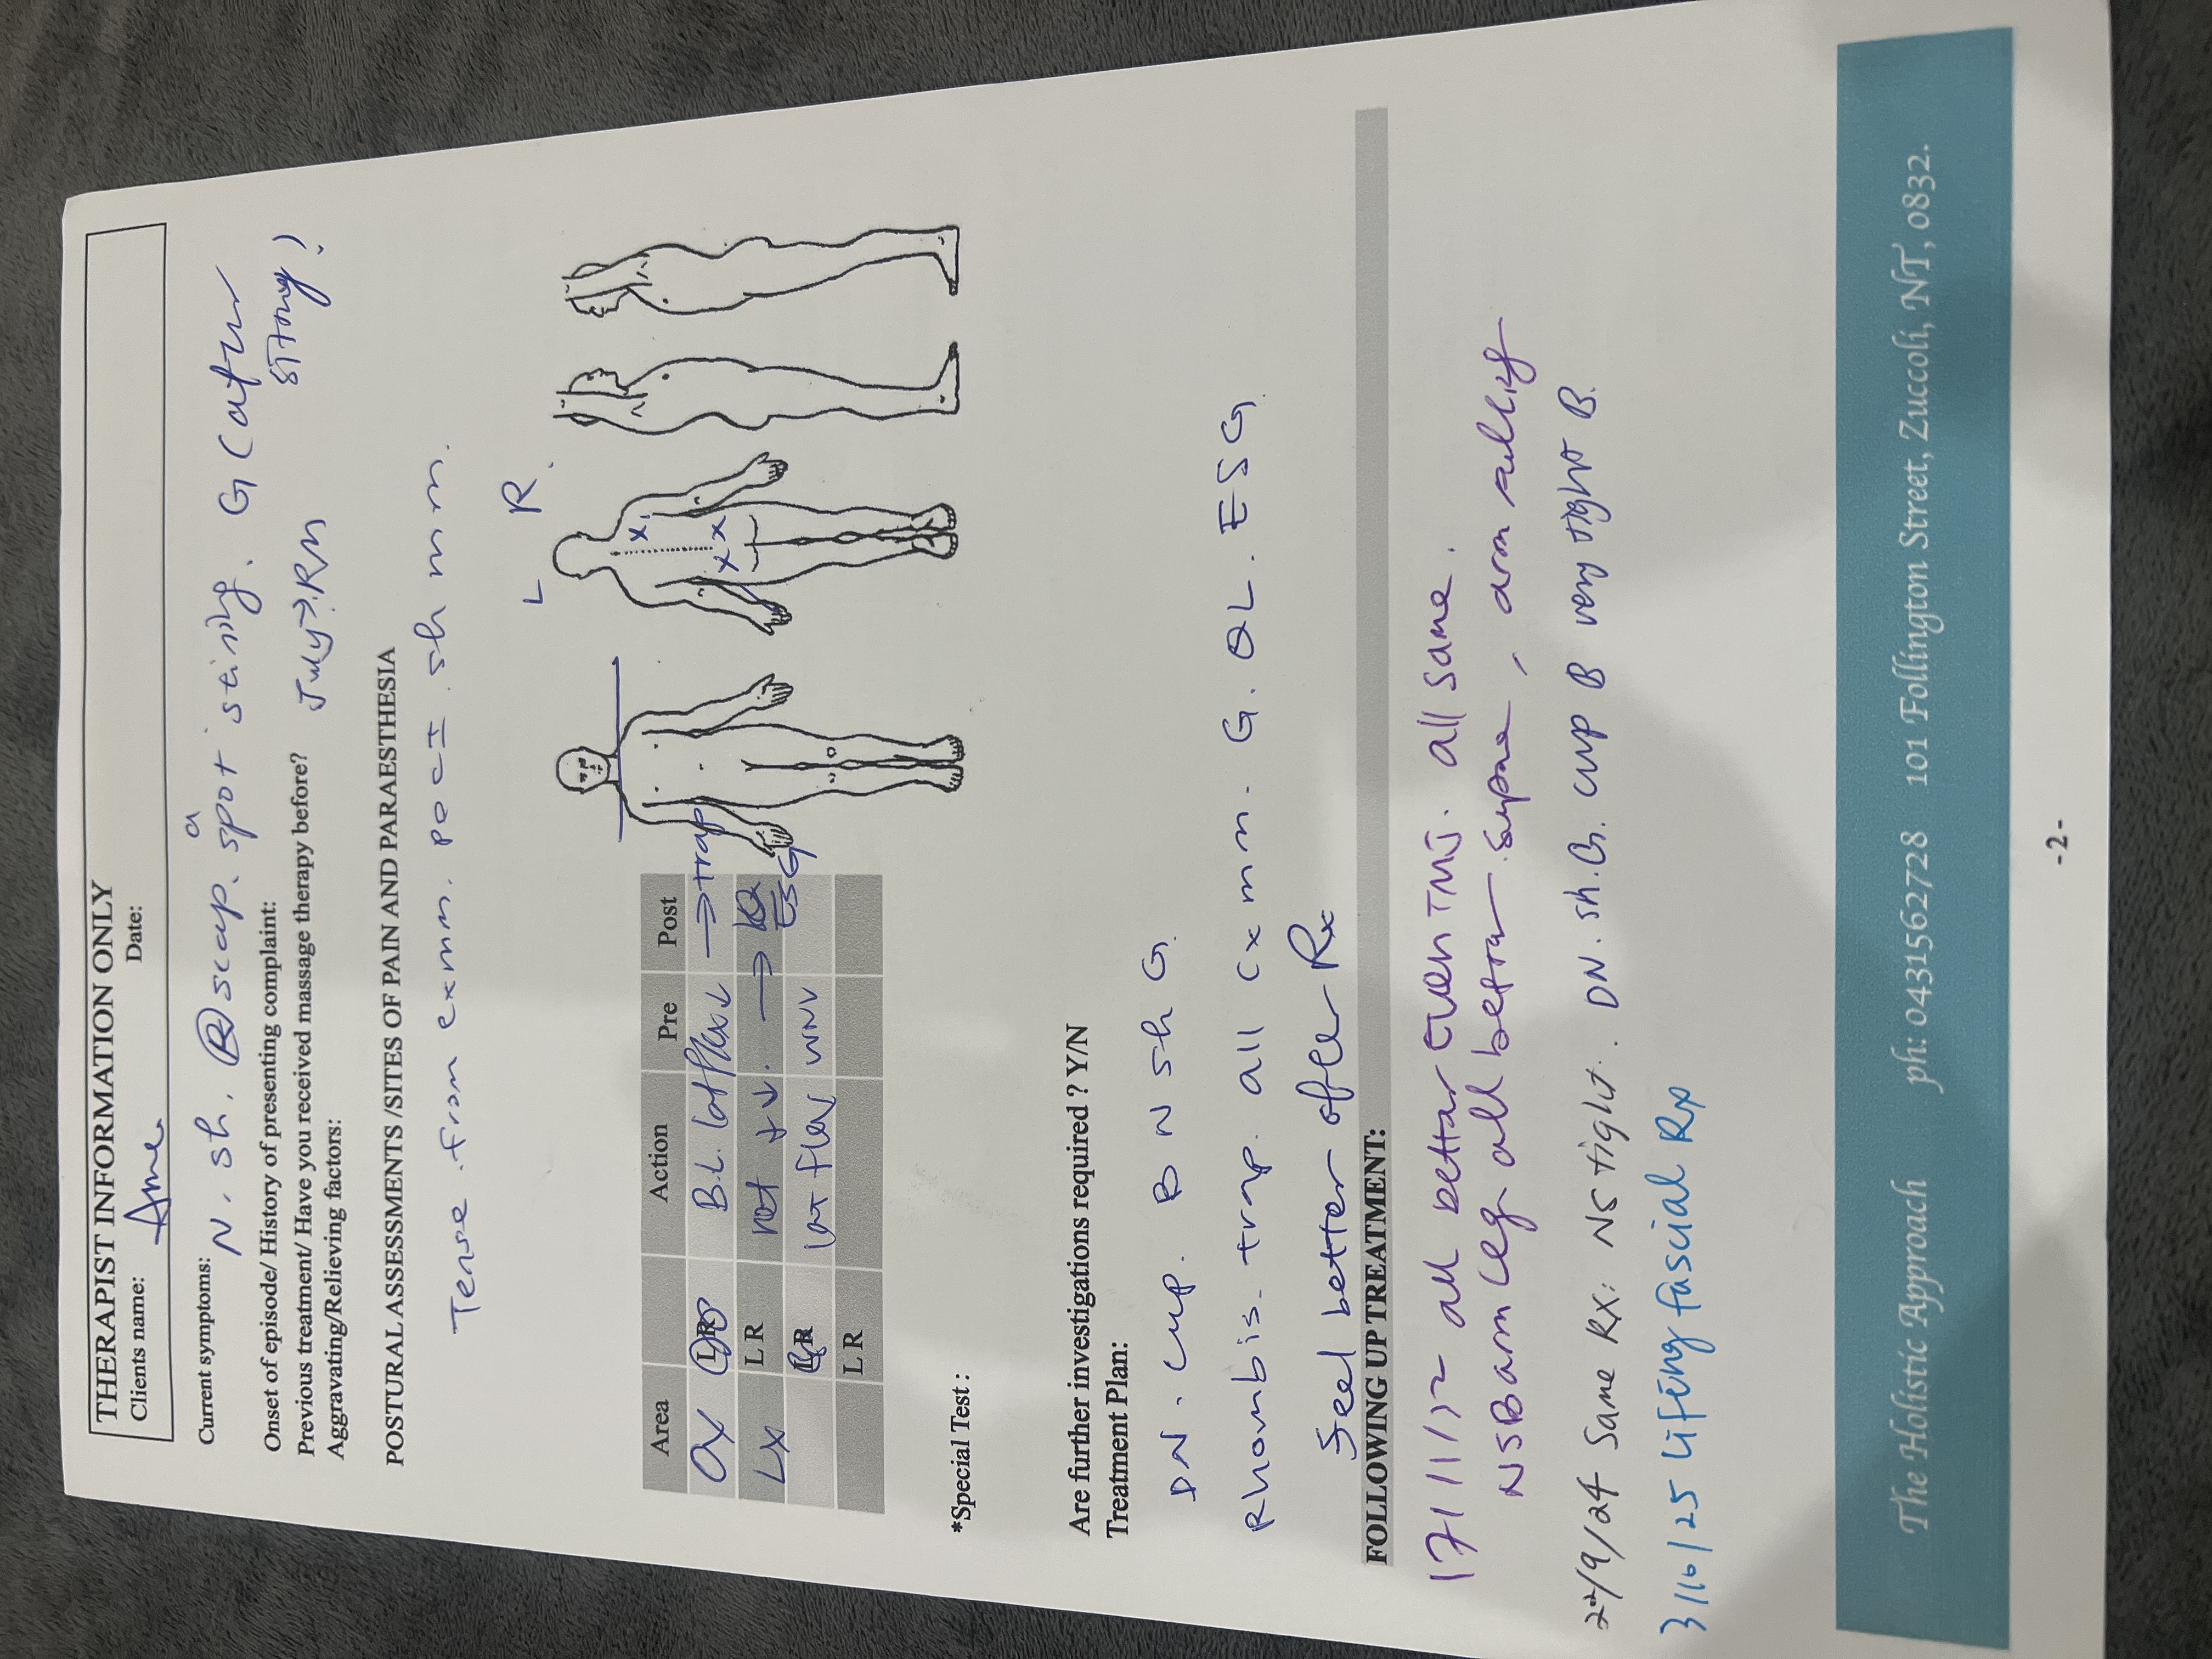 THERAPIST INFORMATION ONLY
Clients name: Date:
Current symptoms:
N. sh. R scap. a spot string. G (after
strong!
Onset of episode/ History of presenting complaint:
Previous treatment/ Have you received massage therapy before? July
Aggravating/Relieving factors:
POSTURAL ASSESSMENTS /SITES OF PAIN AND PARAESTHESIA
Tense from cx mm. pect. sh mm.
L R.
Area Action Pre Post
L R B.L. lat flex ↓ → trap
Lx L R rot ↓↓. → ESG
L R lat flex WNV
L R
*Special Test :
Are further investigations required ? Y/N
Treatment Plan:
DN. cup. B N sh G.
Rhombis. trap. all Cx mm. G. QL. ESG.
Feel better after Rx
FOLLOWING UP TREATMENT:
all better even TMJ. all same.
NSB arm leg all better supine, arm
22/9/24 Same Rx: NS tight. DN. sh. G. cup B very tight B.
3/10/25 Lifting fascial Rx
The Holistic Approach ph: 0431562728 101 Follington Street, Zuccoli, NT, 0832.
-2-